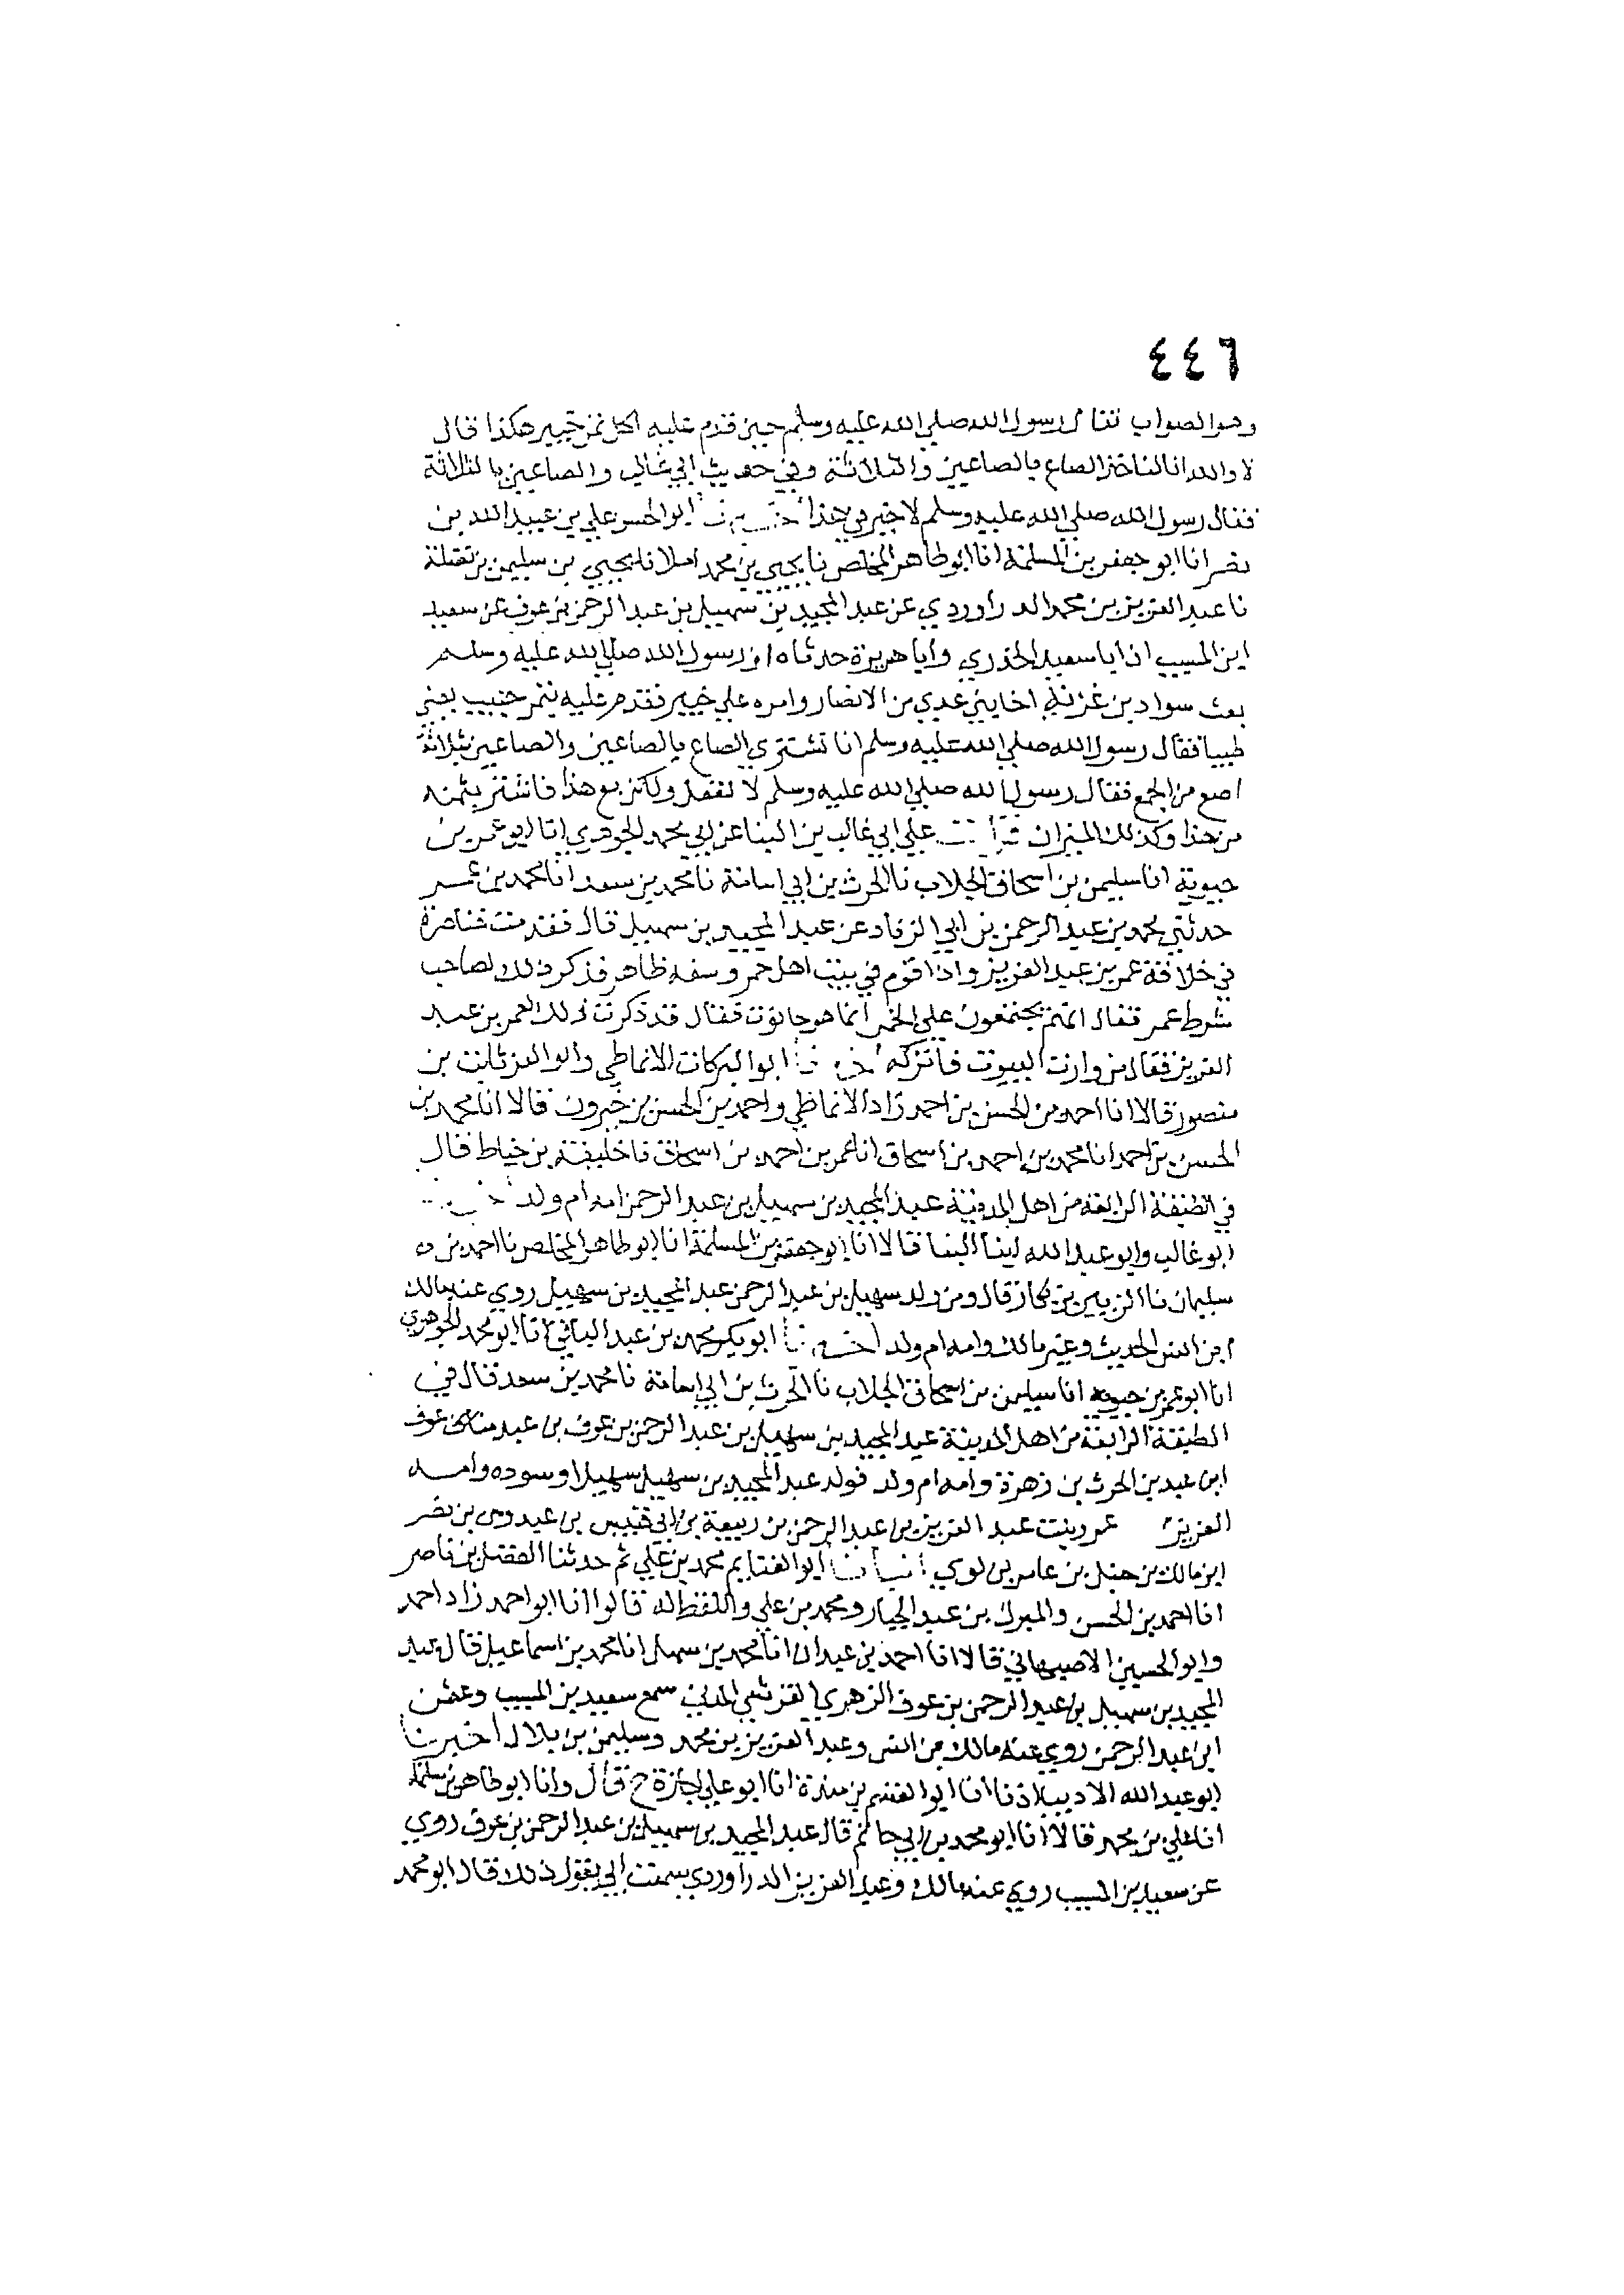 ٤٤٦
وهو الصواب فقال رسول الله صلي الله عليه وسلم حين قدم عليه اكل تمر خيبر هكذا قال
لا والله انا لناخذ الصاع بالصاعين والثلاثة وفي حديث ابي غالب والصاعين بالثلاثة
فقال رسول الله صلي الله عليه وسلم لا خير في هذا ابو الحسن علي بن عبيد الله بن
نصر انا ابو جعفر بن المسلمة انا ابو طاهر المخلص نا يحيي بن محمد املا نا يحيي بن سليمن بن نضلة
نا عبد العزيز بن محمد الدراوردي عن عبد المجيد بن سهيل بن عبد الرحمن بن عوف عن سعيد
ابن المسيب ان ابا سعيد الخدري وابا هريرة حدثاه ان رسول الله صلي الله عليه وسلم
بعث سواد بن غزية اخا بني عدي من الانصار وامره علي خيبر فقدم عليه بتمر جنيب يعني
طيبا فقال رسول الله صلي الله عليه وسلم انا نشتري الصاع بالصاعين والصاعين بثلاثة
اصع من الجمع فقال رسول الله صلي الله عليه وسلم لا تفعل ولكن بع هذا فاشتر بثمنه
من هذا وكذلك الميزان قرأت علي ابي غالب بن البنا عن ابي محمد الجوهري انا ابو عمر بن
حيوية انا سليمن بن اسحاق الجلاب نا الحرث بن ابي اسامة نا محمد بن سعد انا محمد بن عمر
حدثني محمد بن عبد الرحمن بن ابي الزناد عن عبد المجيد بن سهيل قال فقدمت خناصرة
في خلافة عمر بن عبد العزيز واذا قوم في بيت اهل خمر وسفه ظاهر فذكر ذلك لصاحب
شرط عمر فقال انهم يجتمعون علي الخمر انما هو حانوت فقال قد ذكرت ذلك لعمر بن عبد
العزيز فقال من وارت البيوت فاتركه ابو البركات الانماطي وابو العز ثابت بن
منصور قالا انا احمد بن الحسن بن احمد زاد الانماطي واحمد بن الحسن بن خيرون قالا انا محمد بن
الحسن بن احمد انا محمد بن احمد بن اسحاق انا عمر بن احمد بن اسحاق نا خليفة بن خياط قال
في الطبقة الرابعة من اهل المدينة عبد المجيد بن سهيل بن عبد الرحمن امه ام ولد
ابو غالب وابو عبد الله ابنا البنا قالا انا ابو جعفر بن المسلمة انا ابو طاهر المخلص نا احمد بن
سليمان نا الزبير بن بكار قال ومن ولد سهيل بن عبد الرحمن عبد المجيد بن سهيل روي عنه مالك
ابن انس الحديث وغير مالك وامه ام ولد اخبرنا ابو بكر محمد بن عبد الباقي انا ابو محمد الجوهري
انا ابو عمر بن حيوية انا سليمن بن اسحاق الجلاب نا الحرث بن ابي اسامة نا محمد بن سعد قال في
الطبقة الرابعة من اهل المدينة عبد المجيد بن سهيل بن عبد الرحمن بن عوف بن عبد عوف
ابن عبد بن الحرث بن زهرة وامه ام ولد فولد عبد المجيد بن سهيل سهيلا وسوده وامه
العزيز عمر وبنت عبد العزيز بن عبد الرحمن بن ربيعة بن ابي قيس بن عبد ود بن نصر
ابن مالك بن حنبل بن عامر بن لوي انبأنا ابو الغنايم محمد بن علي ثم حدثنا الفضل بن ناصر
انا احمد بن الحسن والمبرك بن عبد الجبار ومحمد بن علي واللفظ له قالوا انا ابو احمد زاد احمد
وابو الحسين الاصبهاني قالا انا احمد بن عبدان انا محمد بن سهل انا محمد بن اسماعيل قال عبد
المجيد بن سهيل بن عبد الرحمن بن عوف الزهري القرشي المدني سمع سعيد بن المسيب وعثمن
ابن عبد الرحمن روي عنه مالك بن انس وعبد العزيز بن محمد وسليمن بن بلال اخبرنا
ابو عبد الله الاديب اذنا انا ابو القسم بن مندة انا ابو علي اجازة ح قال وانا ابو طاهر بن سلمة
انا علي بن محمد قالا انا ابو محمد بن ابي حاتم قال عبد المجيد بن سهيل بن عبد الرحمن بن عوف روي
عن سعيد بن المسيب روي عنه مالك وعبد العزيز الدراوردي سمعت ابي يقول ذلك قال ابو محمد